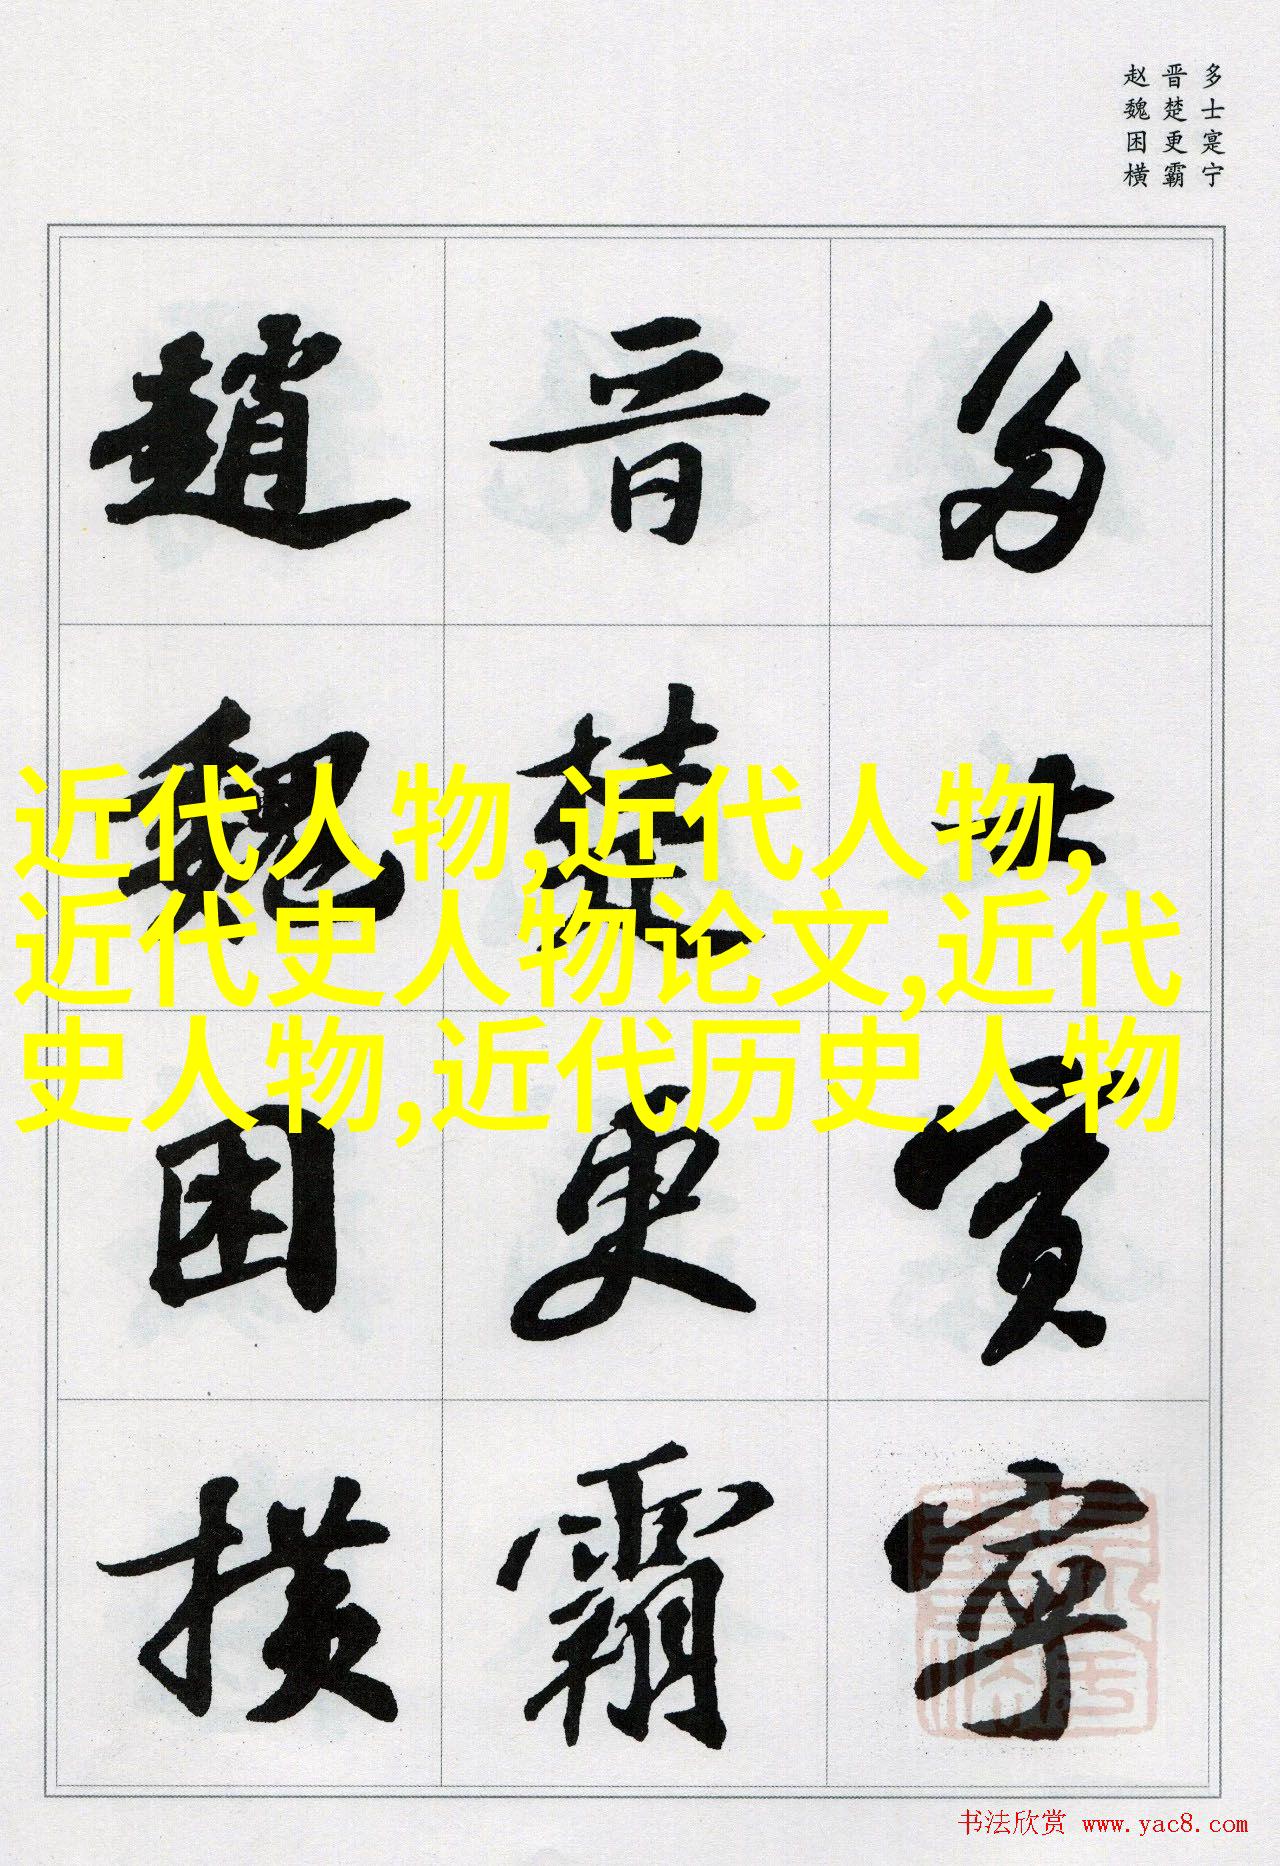 多士寔宁
晋楚更霸
赵魏困横
多士實寧
晋楚更霸
趙魏困横
近代人物,近代人物,
近代史人物论文,近代
史人物,近代历史人物
书法欣赏 www.yac8.com